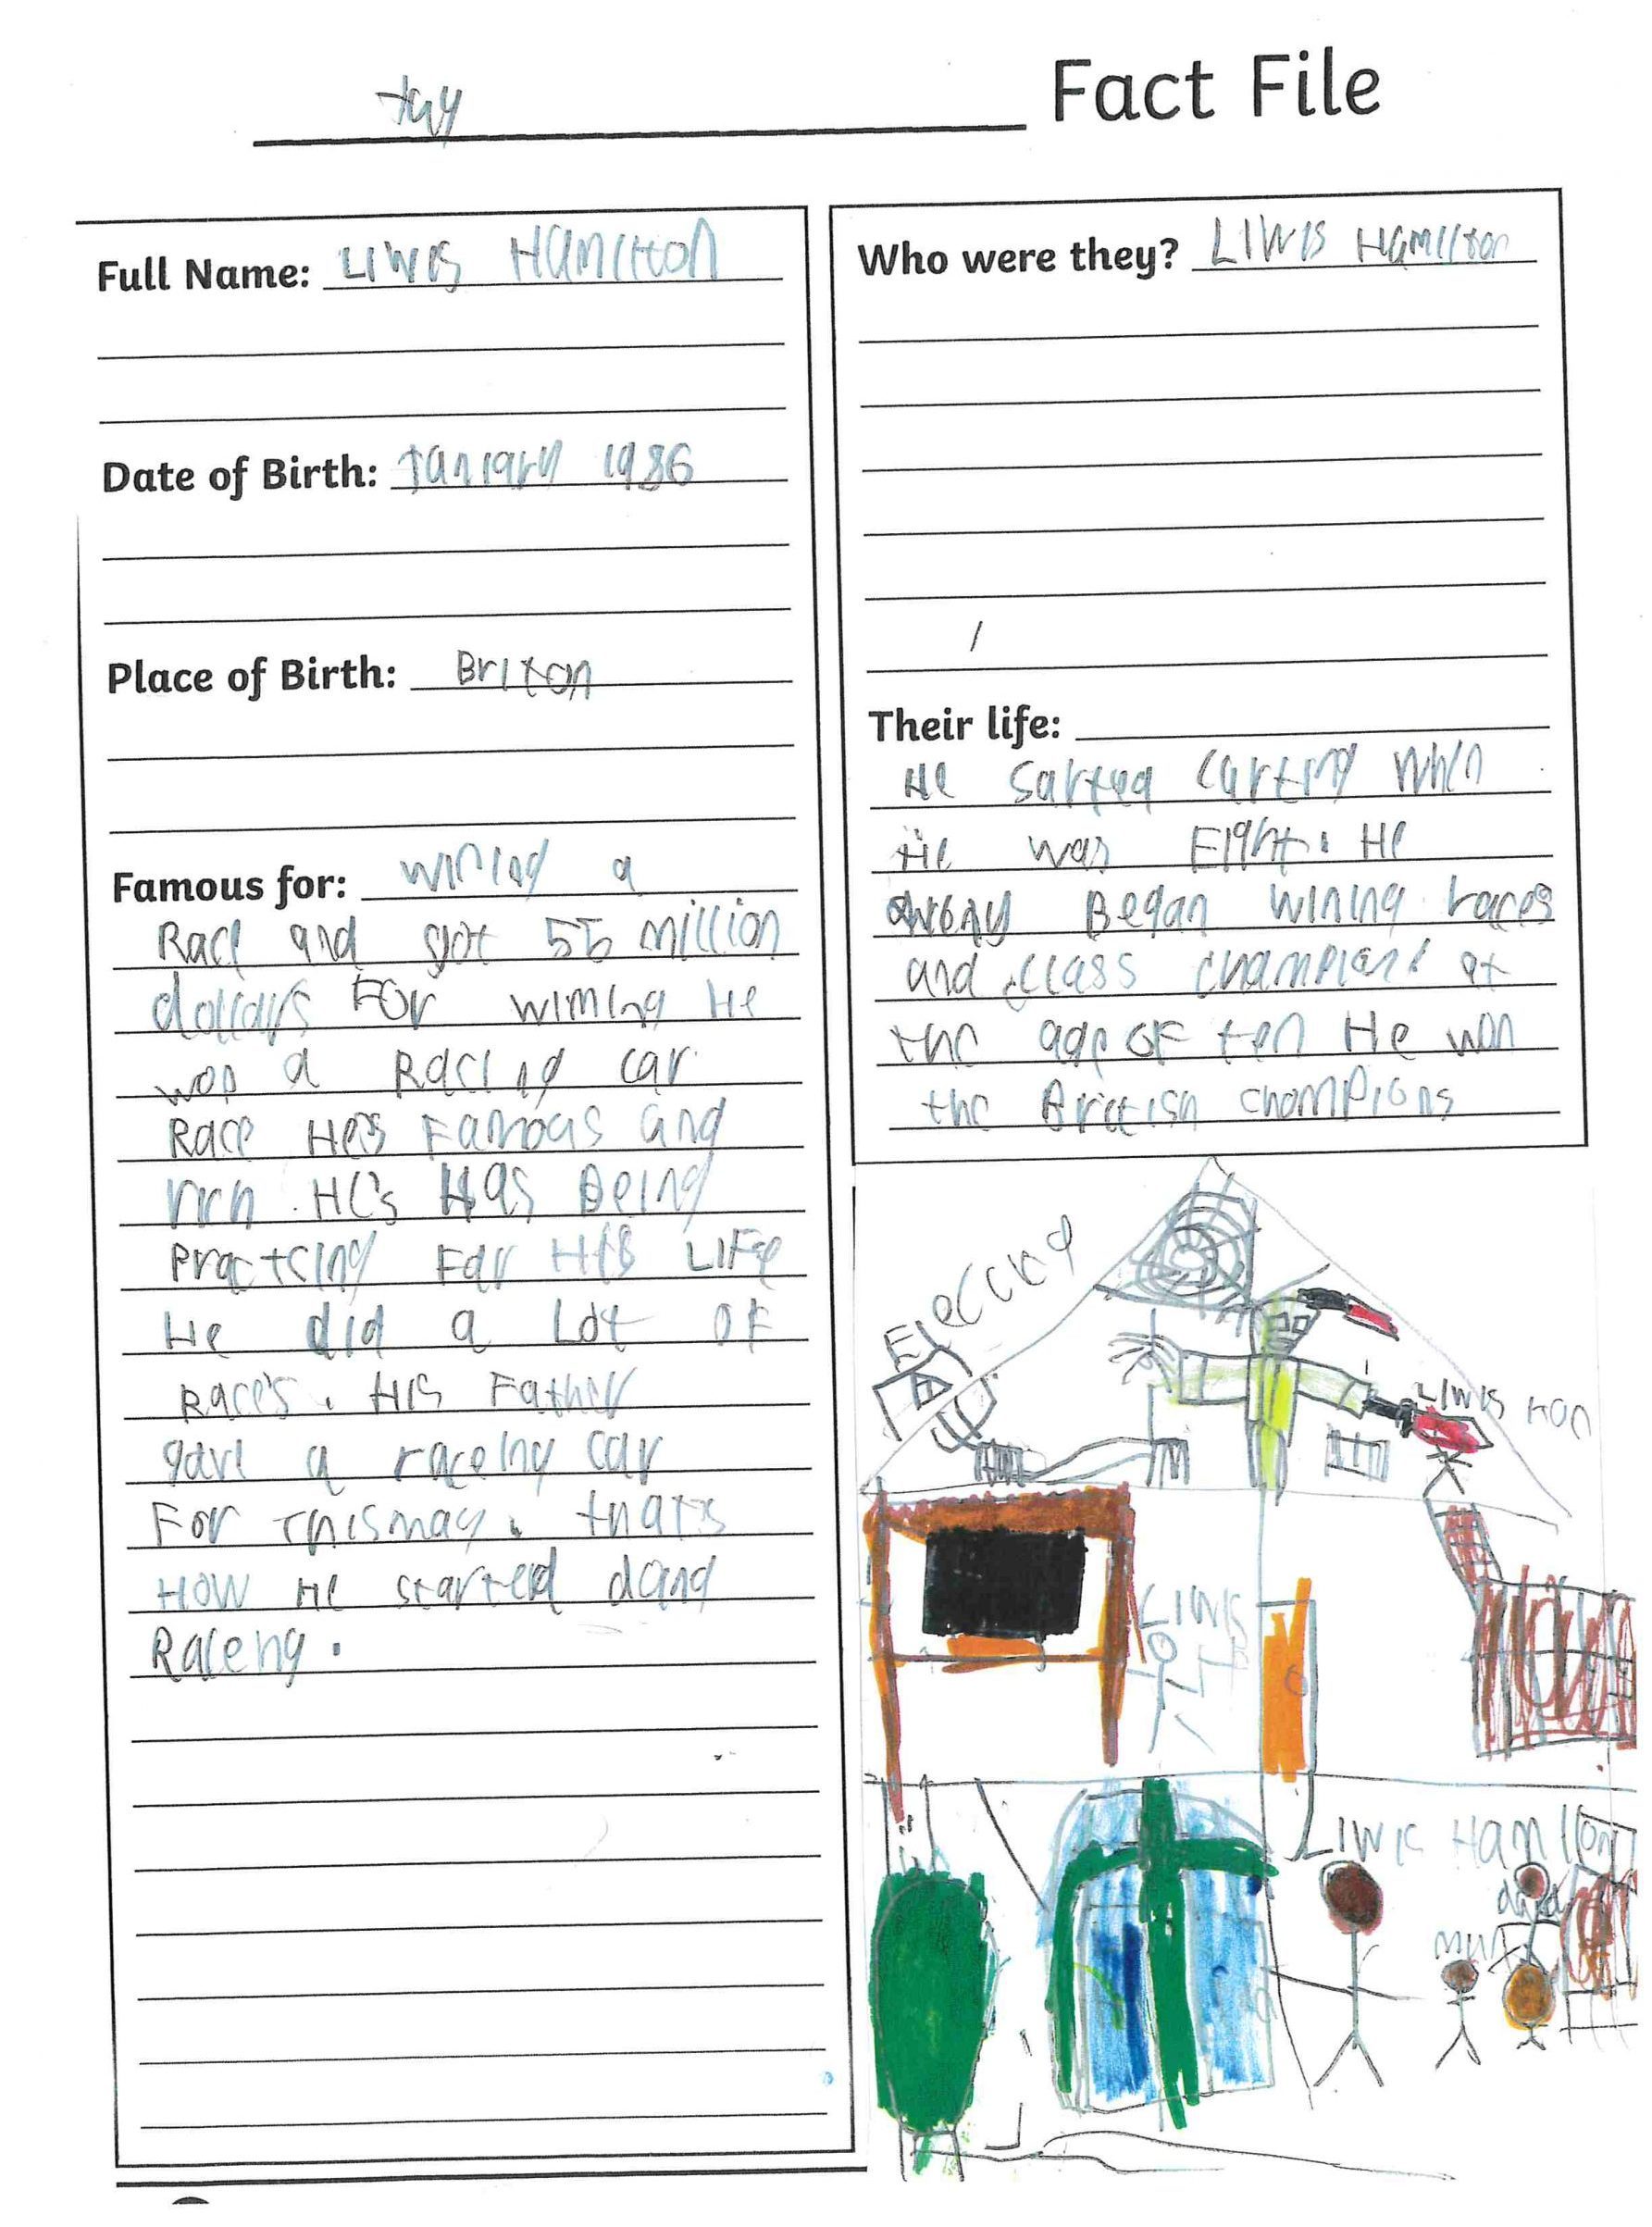 Jay Fact File
Full Name: LIWIS HAMILtON
Date of Birth: Janiary 1986
Place of Birth: Briton
Famous for: wining a
Race and got 55 million
dollars For wiming He
won a Racing car
Race He's Famous and
rich. He's Has Being
Practcing For His Life
He did a Lot of
Race's. His Father
gave a raceing car
For Thismas. that's
How He started doing
Raceng.
Who were they? LIWIS HAMILton
Their life:
He Sarted Carting When
He was Eight. He
Began wining races
and class champion! at
the age of ten He won
the British champions
LIWIS
LIWIS
LIWIS Hamilton
mum